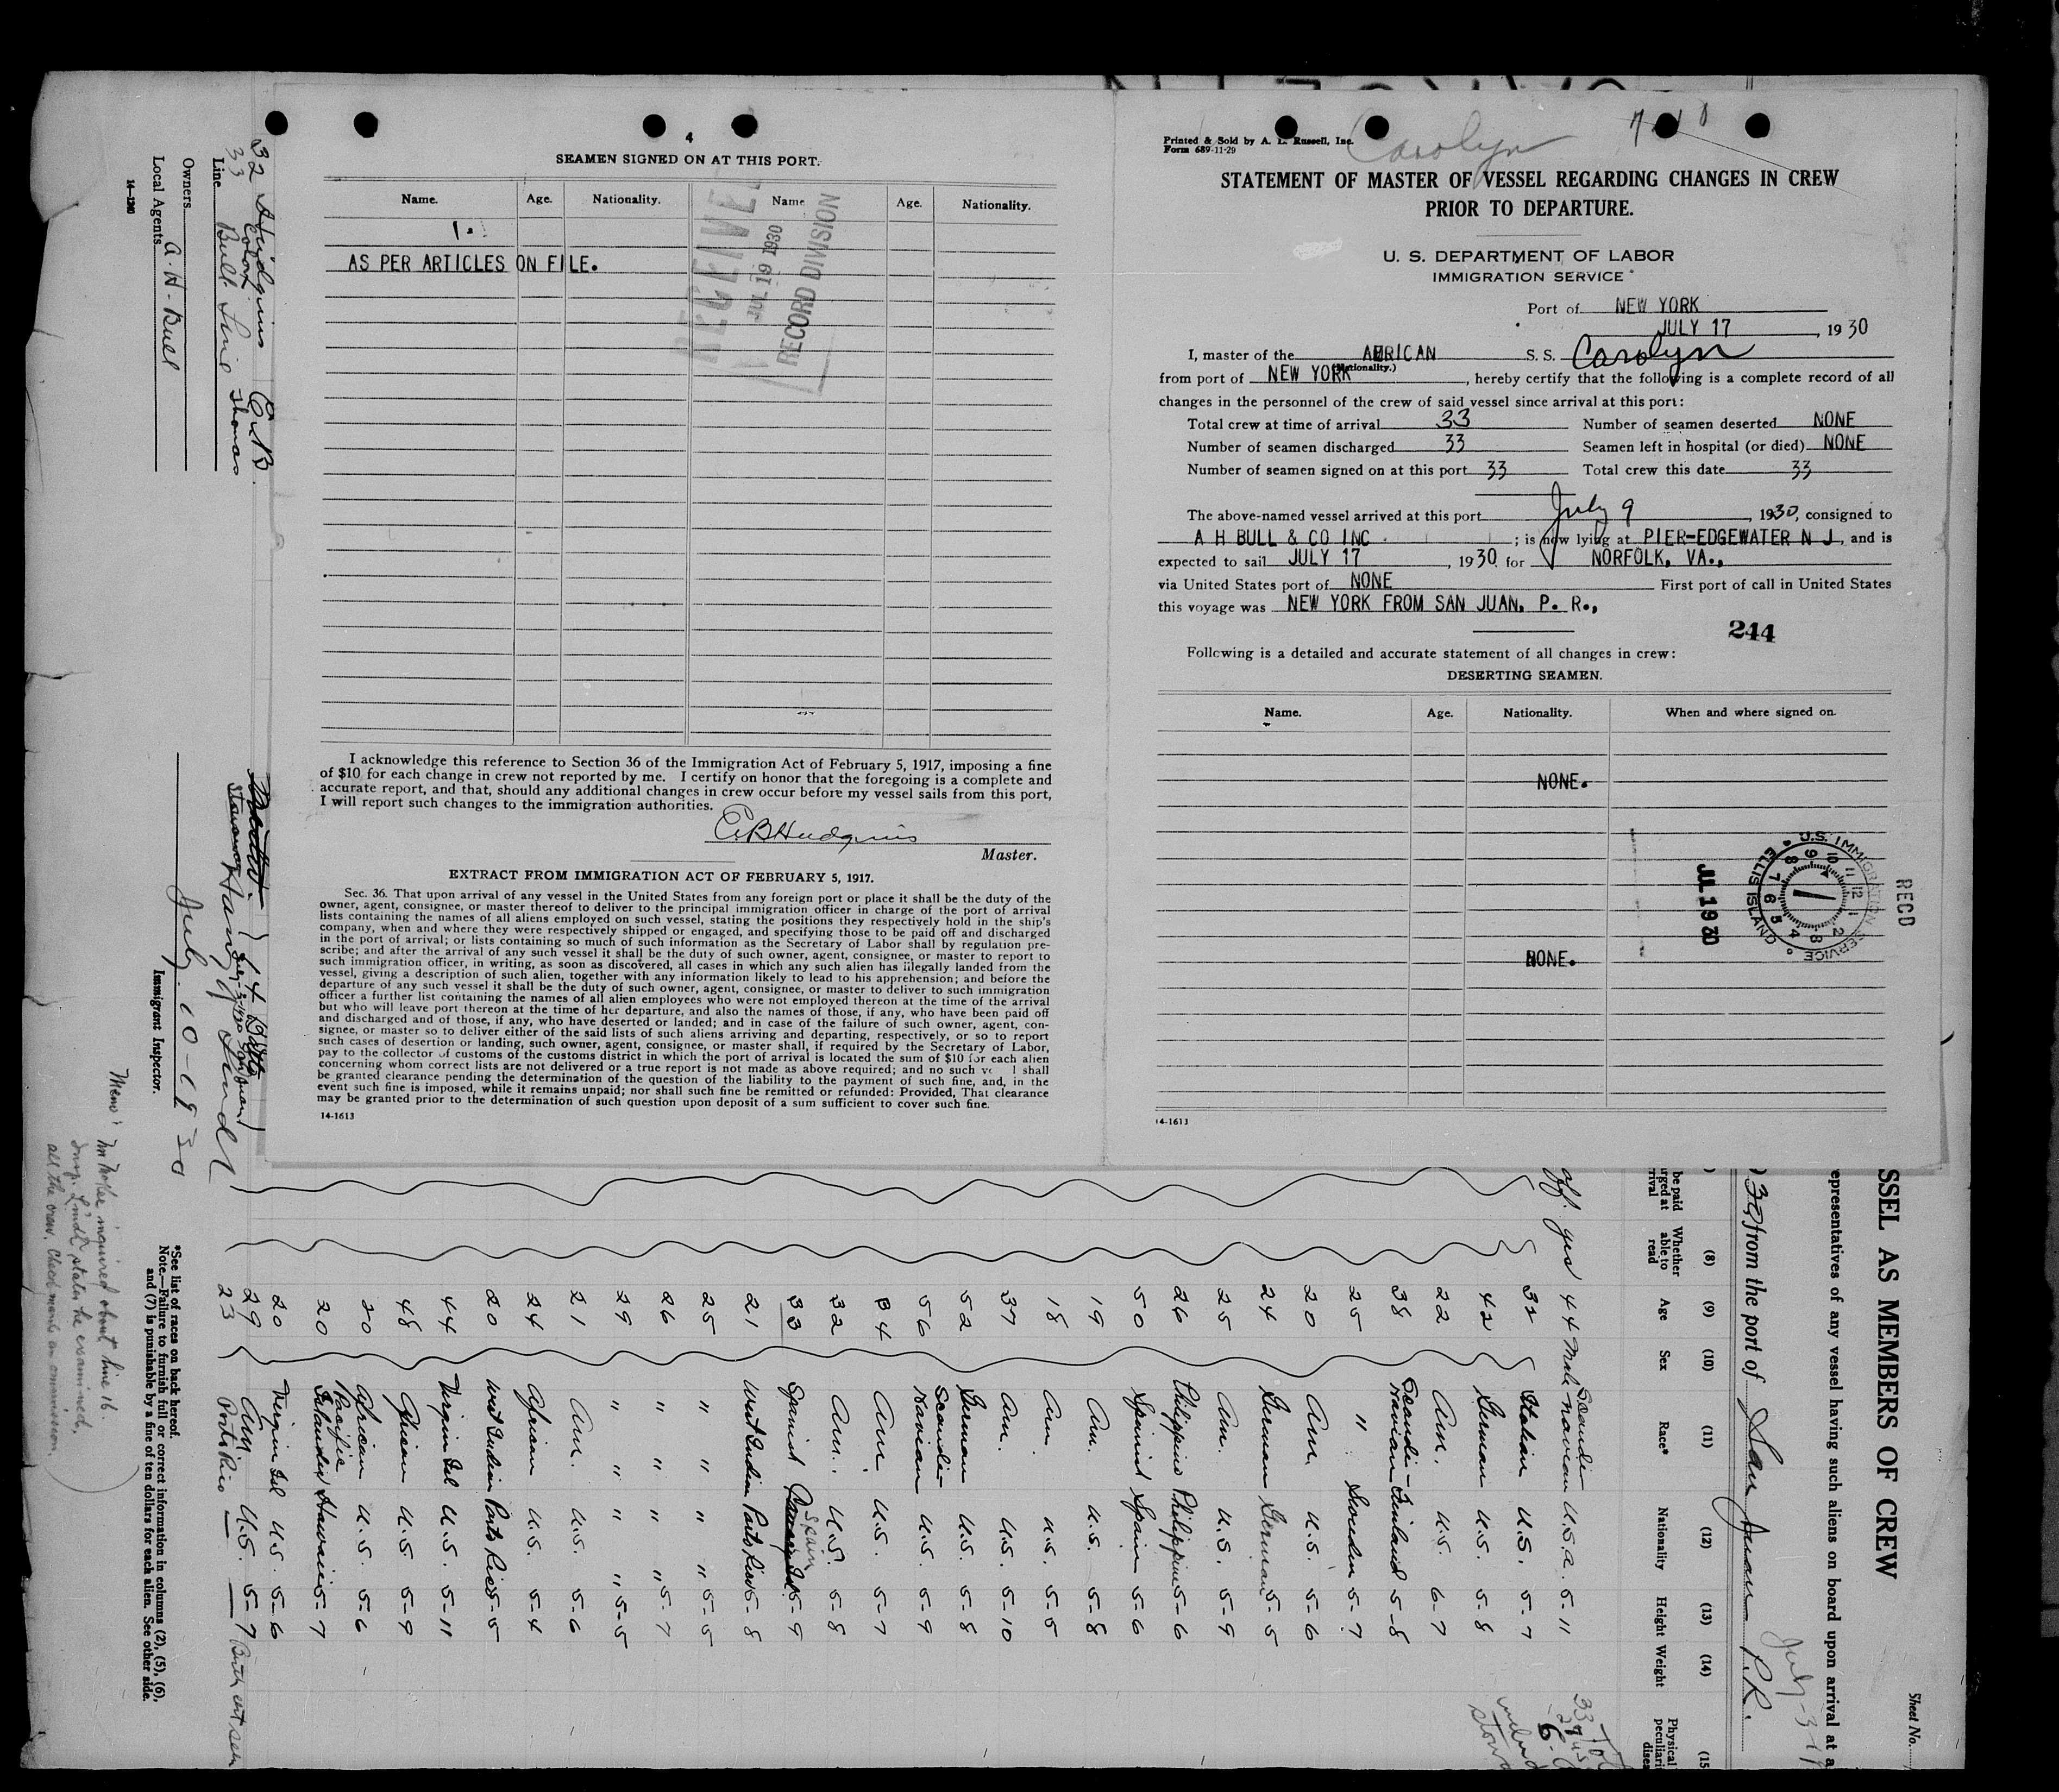 4
SEAMEN SIGNED ON AT THIS PORT.
Name. Age. Nationality. Name Age. Nationality.
1.
AS PER ARTICLES ON FILE.
RECEIVED
JUL 19 1930
RECORD DIVISION
I acknowledge this reference to Section 36 of the Immigration Act of February 5, 1917, imposing a fine
of $10 for each change in crew not reported by me. I certify on honor that the foregoing is a complete and
accurate report, and that, should any additional changes in crew occur before my vessel sails from this port,
I will report such changes to the immigration authorities.
C.B Hudgins
Master.
EXTRACT FROM IMMIGRATION ACT OF FEBRUARY 5, 1917.
Sec. 36. That upon arrival of any vessel in the United States from any foreign port or place it shall be the duty of the
owner, agent, consignee, or master thereof to deliver to the principal immigration officer in charge of the port of arrival
lists containing the names of all aliens employed on such vessel, stating the positions they respectively hold in the ship's
company, when and where they were respectively shipped or engaged, and specifying those to be paid off and discharged
in the port of arrival; or lists containing so much of such information as the Secretary of Labor shall by regulation pre-
scribe; and after the arrival of any such vessel it shall be the duty of such owner, agent, consignee, or master to report to
such immigration officer, in writing, as soon as discovered, all cases in which any such alien has illegally landed from the
vessel, giving a description of such alien, together with any information likely to lead to his apprehension; and before the
departure of any such vessel it shall be the duty of such owner, agent, consignee, or master to deliver to such immigration
officer a further list containing the names of all alien employees who were not employed thereon at the time of the arrival
but who will leave port thereon at the time of her departure, and also the names of those, if any, who have been paid off
and discharged and of those, if any, who have deserted or landed; and in case of the failure of such owner, agent, con-
signee, or master so to deliver either of the said lists of such aliens arriving and departing, respectively, or so to report
such cases of desertion or landing, such owner, agent, consignee, or master shall, if required by the Secretary of Labor,
pay to the collector of customs of the customs district in which the port of arrival is located the sum of $10 for each alien
concerning whom correct lists are not delivered or a true report is not made as above required; and no such ve l shall
be granted clearance pending the determination of the question of the liability to the payment of such fine, and, in the
event such fine is imposed, while it remains unpaid; nor shall such fine be remitted or refunded: Provided, That clearance
may be granted prior to the determination of such question upon deposit of a sum sufficient to cover such fine.
14-1613
Printed & Sold by A. L. Russell, Inc.
Form 689-11-29
Carolyn
STATEMENT OF MASTER OF VESSEL REGARDING CHANGES IN CREW
PRIOR TO DEPARTURE.
U. S. DEPARTMENT OF LABOR
IMMIGRATION SERVICE
Port of NEW YORK
JULY 17, 1930
I, master of the AMERICAN S. S. Carolyn
(Nationality.)
from port of NEW YORK, hereby certify that the following is a complete record of all
changes in the personnel of the crew of said vessel since arrival at this port:
Total crew at time of arrival 33 Number of seamen deserted NONE
Number of seamen discharged 33 Seamen left in hospital (or died) NONE
Number of seamen signed on at this port 33 Total crew this date 33
The above-named vessel arrived at this port July 9, 1930, consigned to
A H BULL & CO INC ; is now lying at PIER-EDGEWATER N J, and is
expected to sail JULY 17, 1930 for NORFOLK, VA.,
via United States port of NONE First port of call in United States
this voyage was NEW YORK FROM SAN JUAN, P. R.,
244
Following is a detailed and accurate statement of all changes in crew:
DESERTING SEAMEN.
Name. Age. Nationality. When and where signed on.
NONE.
NONE.
JUL 19 30
U.S. IMMIGRATION SERVICE
ELLIS ISLAND
RECD
14-1613
Sheet No.
SSEL AS MEMBERS OF CREW
epresentatives of any vessel having such aliens on board upon arrival at a
from the port of San Juan P.R.
be paid
rged at
rrival
(8) Whether able to read
(9) Age
(10) Sex
(11) Race*
(12) Nationality
(13) Height
(14) Weight
(15
Physical
peculiari
disea
yes 44 Male Scandinavian U.S.A. 5-11
32 Italian U.S. 5-7
42 German U.S. 5-8
22 Am. U.S. 6-7
38 Scandinavian Finland 5-8
25 " Sweden 5-7
20 Am. U.S. 5-6
24 German German 5-5
25 Am. U.S. 5-9
26 Philippine Philippine 5-6
50 Spanish Spain 5-6
19 Am. U.S. 5-8
18 Am U.S. 5-5
37 Am. U.S. 5-10
52 German U.S. 5-8
56 Scandinavian U.S. 5-9
34 Am. U.S. 5-7
32 Am. U.S. 5-8
33 Spanish Spain 5-9
21 West Indian Porto Rico 5-8
25 " " " 5-5
26 " " " 5-7
29 " " " 5-5
21 Am. U.S. 5-6
24 African U.S. 5-4
20 West Indian Porto Rico 5-5
44 Virgin Isl U.S. 5-11
48 African U.S. 5-9
20 African U.S. 5-6
20 Pacific Islander Hawaii 5-7
20 Virgin Isl U.S. 5-6
29 Am U.S. 5-7
23 Porto Rico
32 Hudgins C.B.
33 Thomas
Line Bull Line
Owners A. H. Bull
Local Agents
14-1240
July 10-1930
Immigrant Inspector.
*See list of races on back hereof.
Note.—Failure to furnish full or correct information in columns (2), (5), (6),
and (7) is punishable by a fine of ten dollars for each alien. See other side.
Memo: inquired about line 16.
states he examined
all the crew. Check marks an ommission.